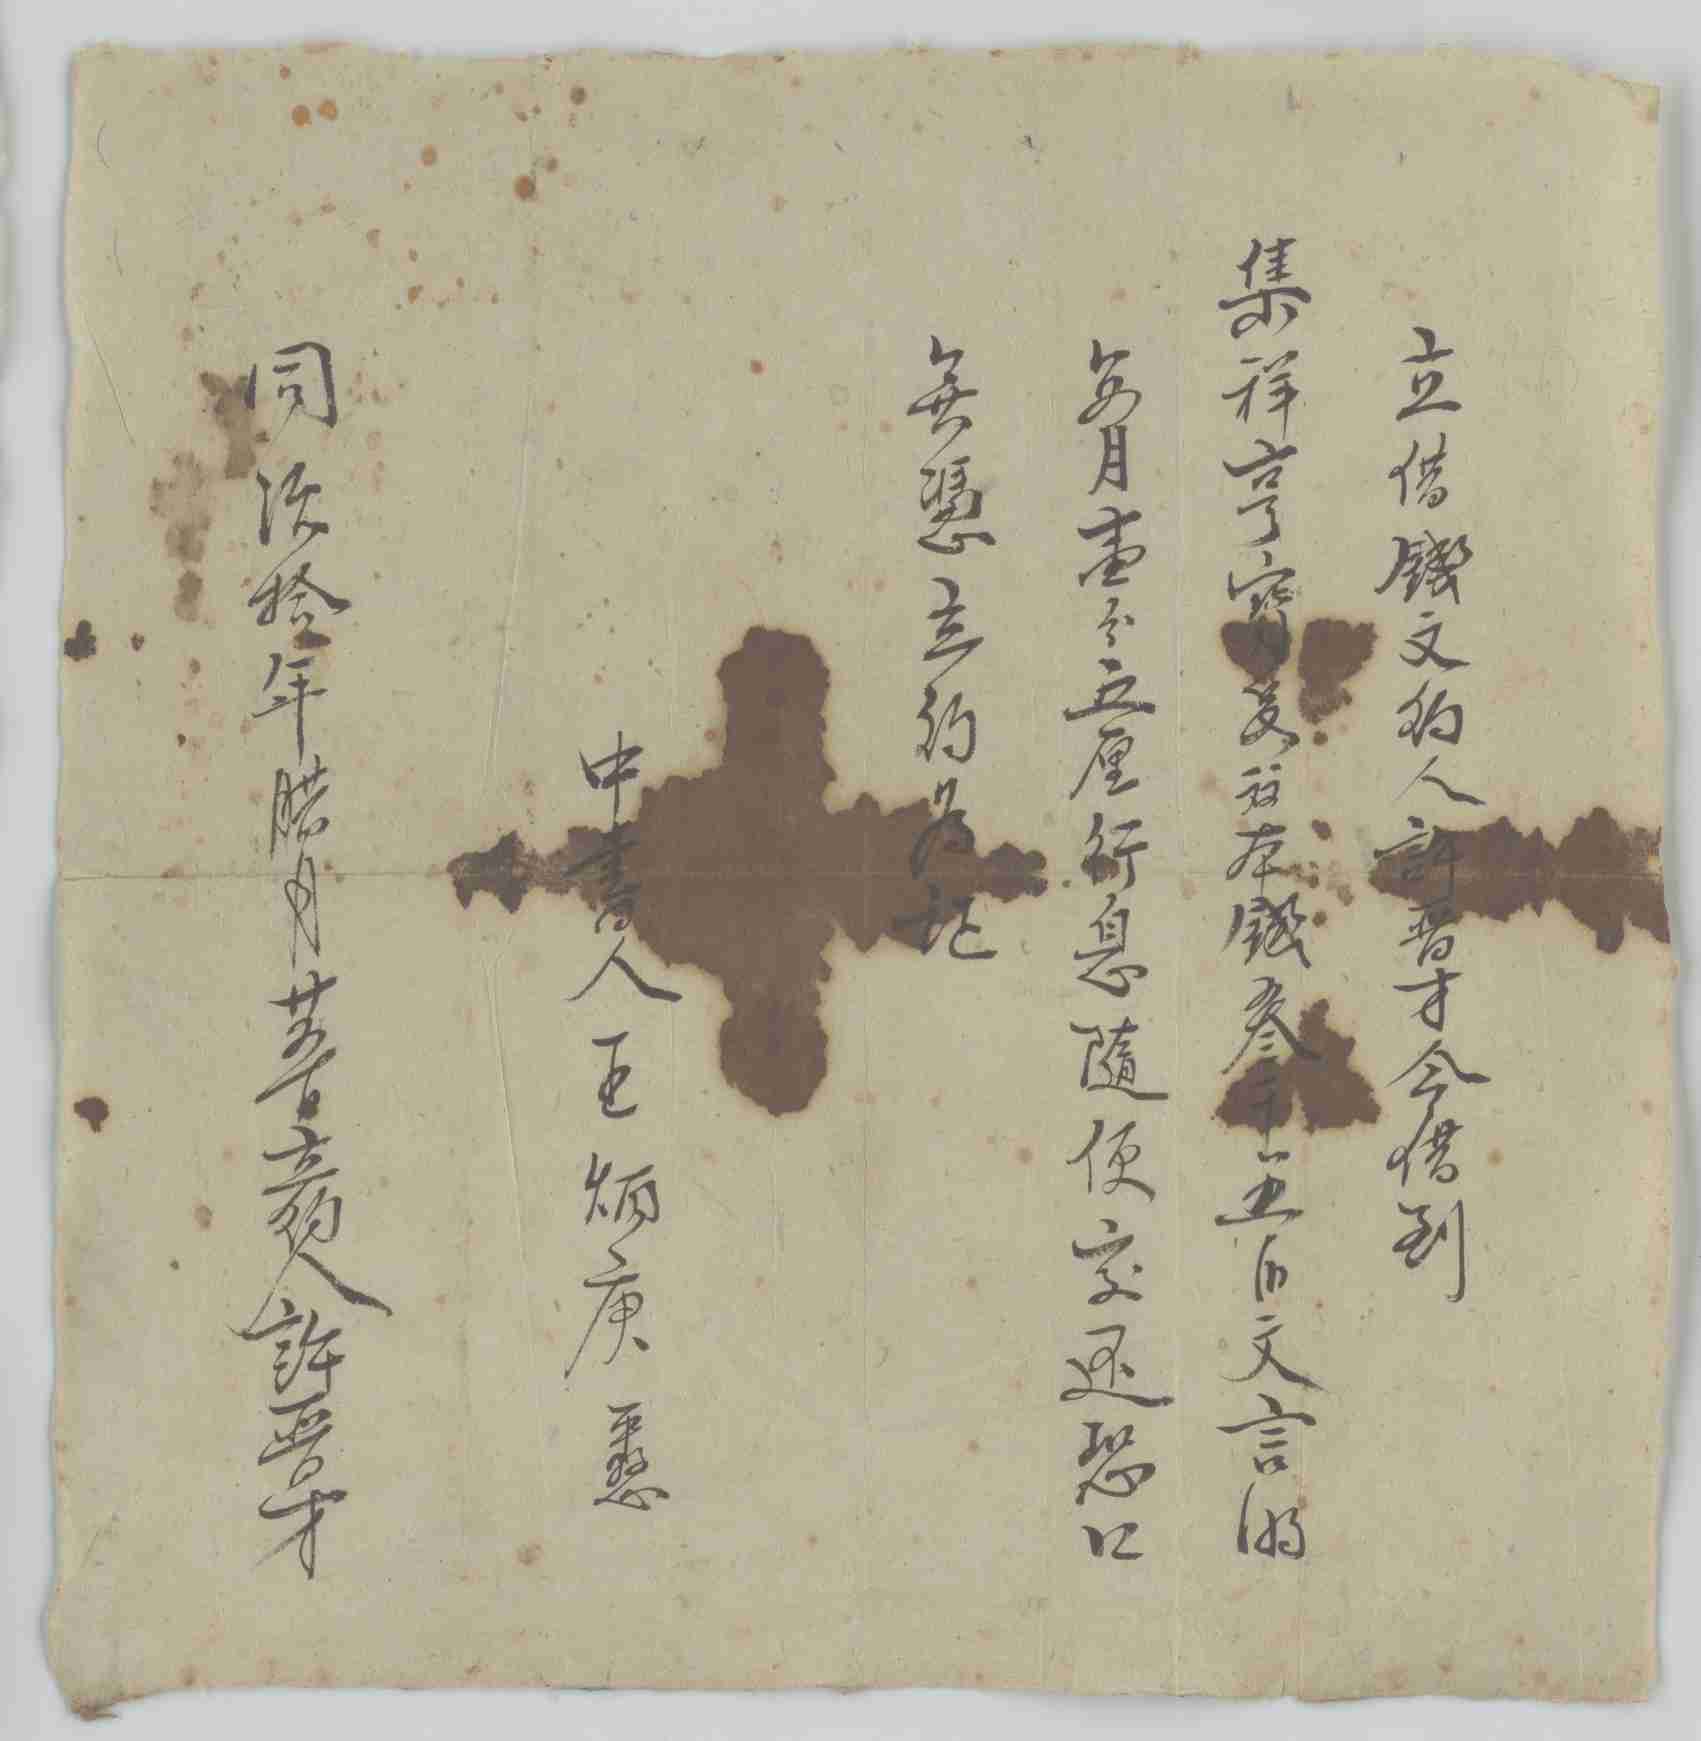 立借錢文約人許晋才今借到
集祥亨寶足本錢叁千五百文言明
每月壹分五厘行息隨便交還恐口
無憑立約為記
中書人王炳庚憑
同治拾年腊月廿五日立約人許晋才